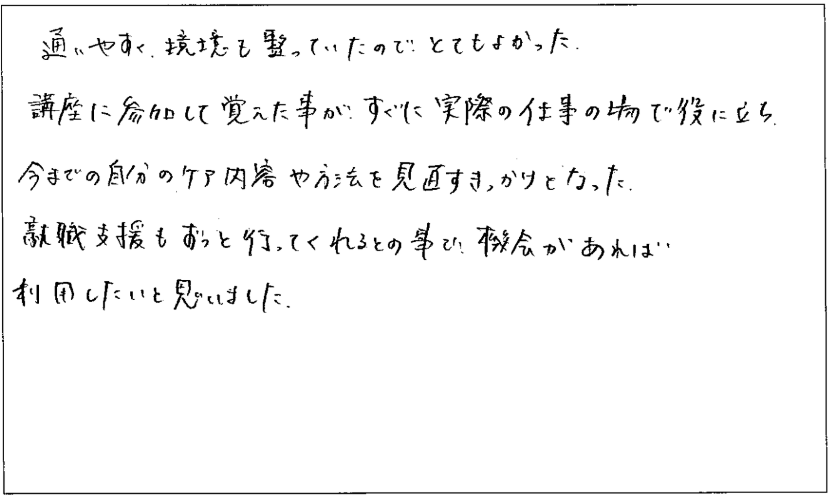 通いやすく、環境も整っていたのでとてもよかった。
講座に参加して覚えた事がすぐに実際の仕事の場で役に立ち、
今までの自分のケア内容や方法を見直すきっかけとなった。
就職支援もずっと行ってくれるとの事で、機会があれば
利用したいと思いました。